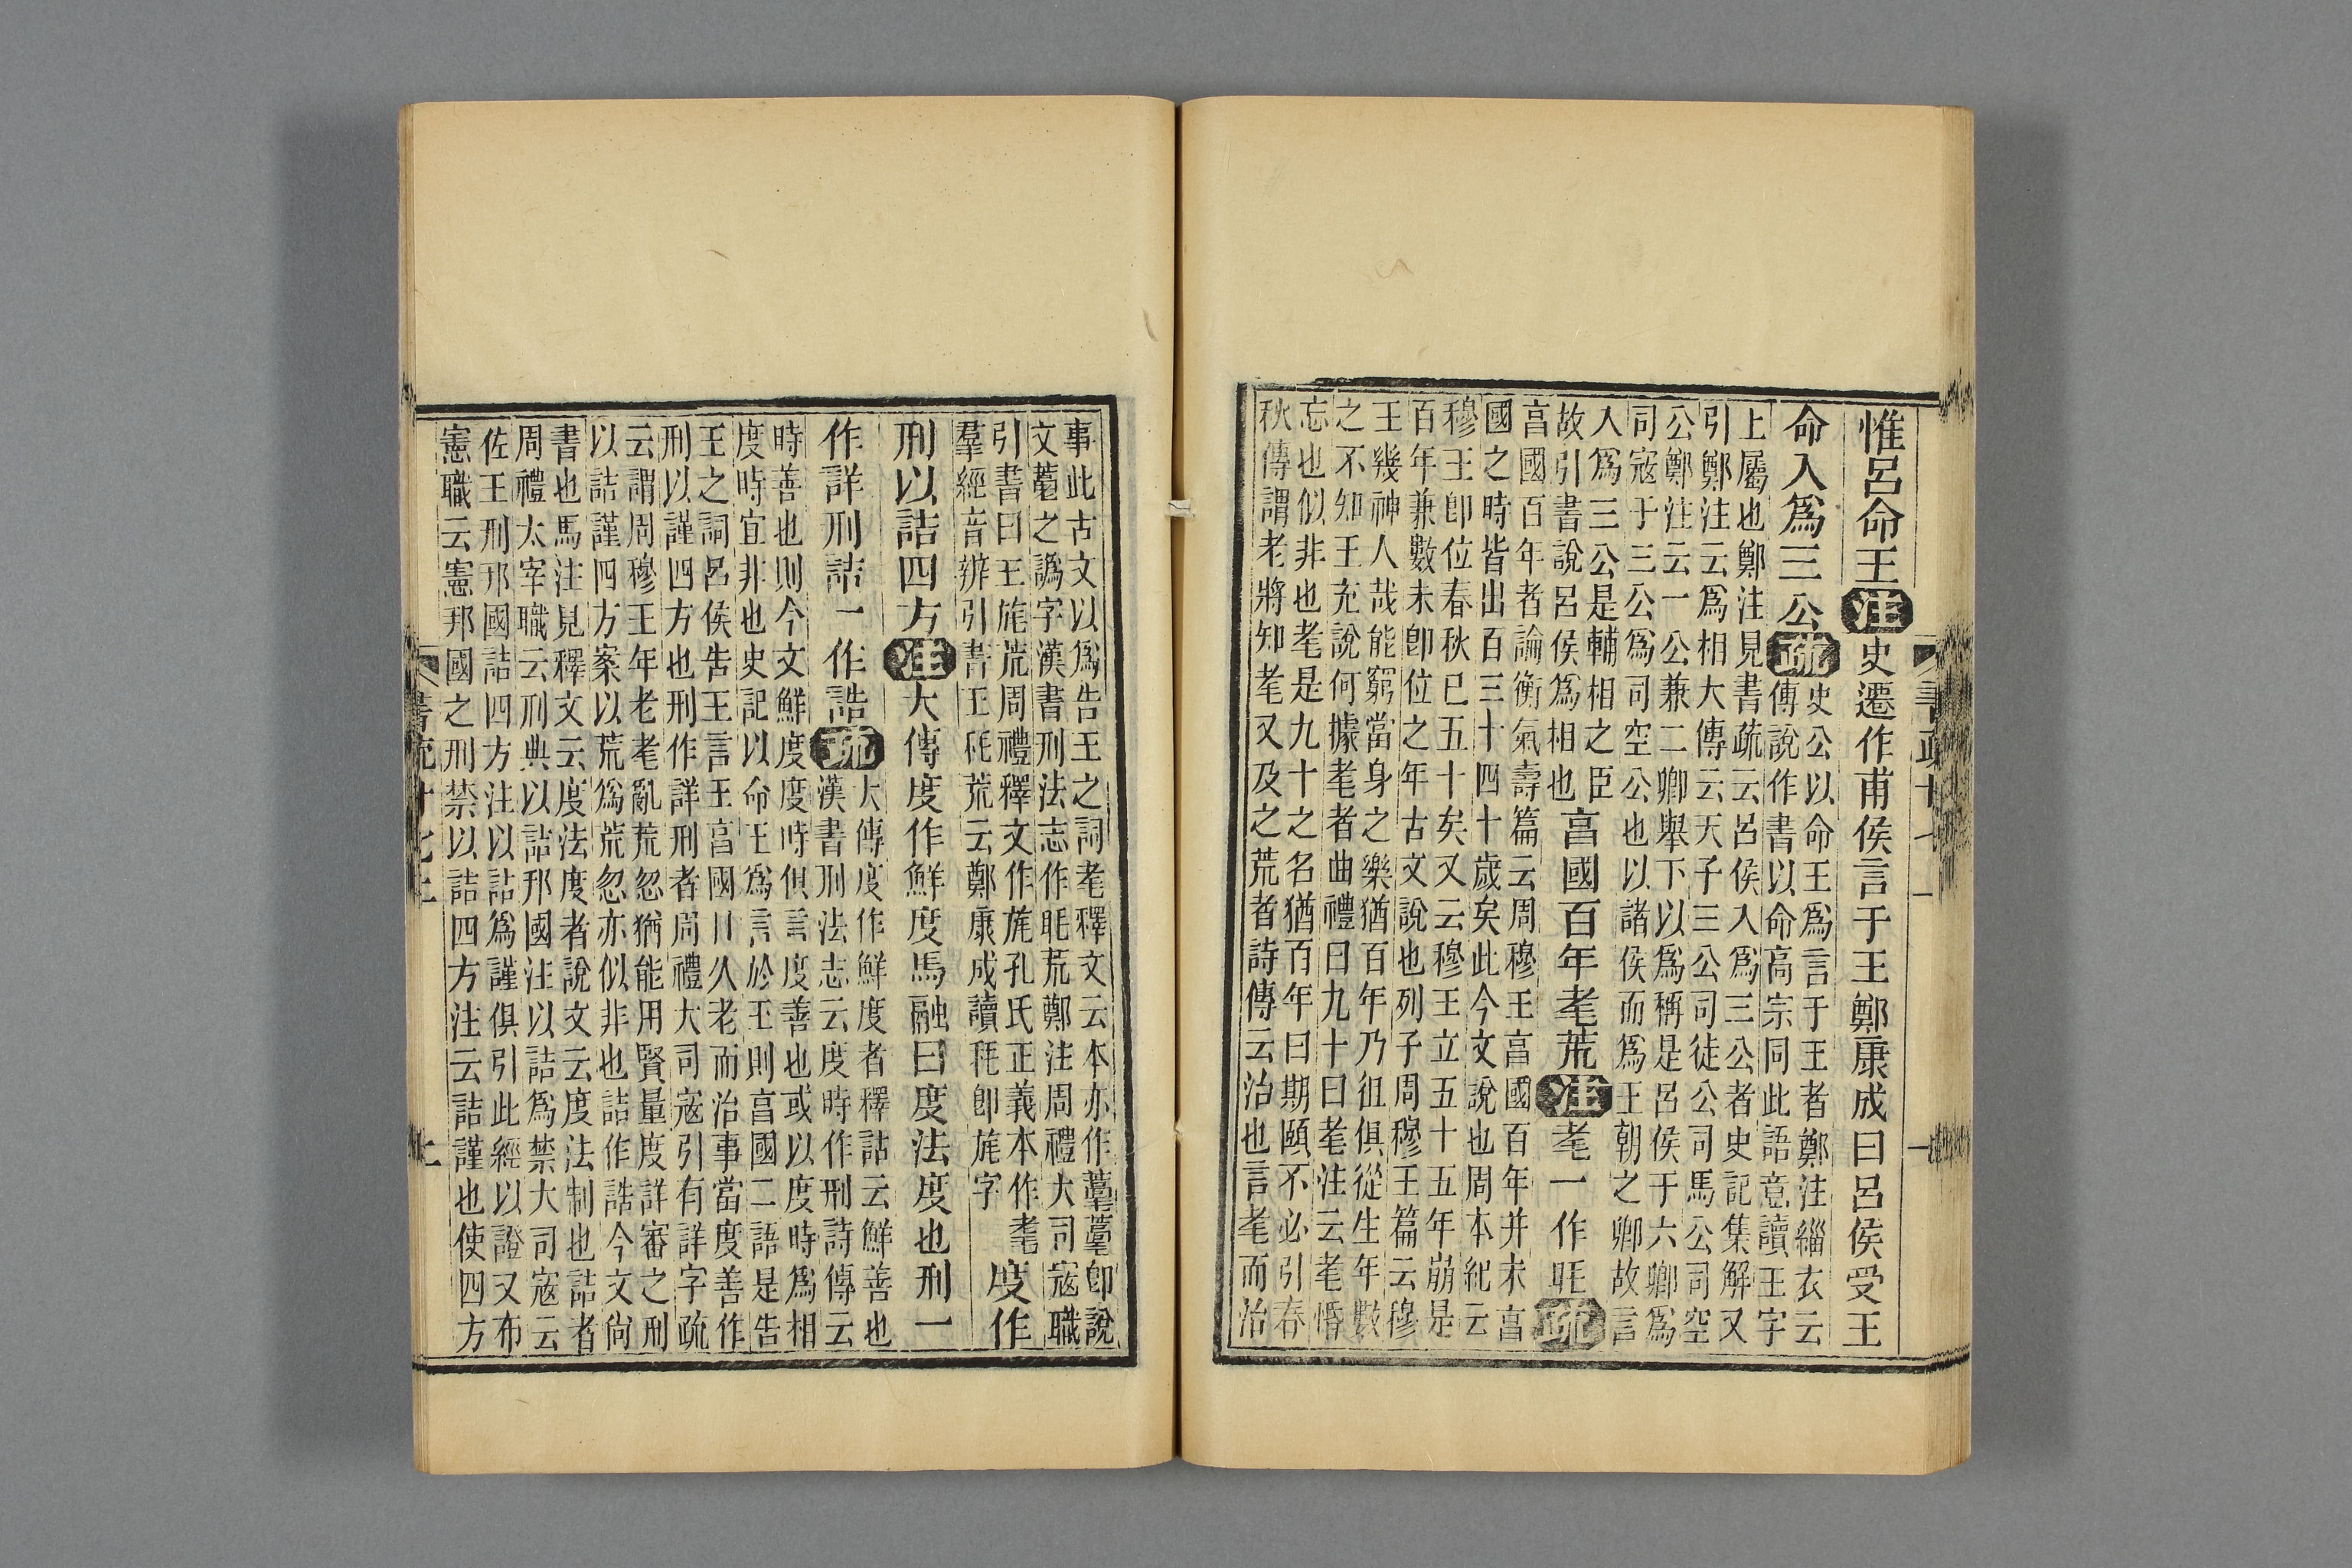 惟呂命王注史遷作甫侯言于王鄭康成曰呂侯受王
命入爲三公疏
史公以命王爲言于王者鄭注緇衣云
傳說作書以命高宗同此語意讀王字
上屬也鄭注見書疏云呂侯入爲三公者史記集解又
引鄭注云爲相大傳云天子三公司徒公司馬公司空
公鄭注云一公兼二卿舉下以爲稱是呂侯于六卿爲
司寇于三公爲司空公也以諸侯而爲王朝之卿故言
入爲三公是輔相之臣
故引書說呂侯爲相也
亯國百年耄荒注耄一作眊疏
亯國百年者論衡氣壽篇云周穆王亯國百年并未亯
國之時皆出百三十四十歲矣此今文說也周本紀云
穆王卽位春秋已五十矣又云穆王立五十五年崩是
百年兼數未卽位之年古文說也列子周穆王篇云穆
王幾神人哉能窮當身之樂猶百年乃徂俱從生年數
之不知王充說何據耄者曲禮曰九十曰耄注云耄惛
忘也似非也耄是九十之名猶百年曰期頤不必引春
秋傳謂老將知耄又及之荒者詩傳云治也言耄而治
事此古文以爲告王之詞耄釋文云本亦作卽說
文之譌字漢書刑法志作眊荒鄭注周禮大司寇職
引書曰王旄荒周禮釋文作旄孔氏正義本作耄
羣經音辨引書王秏荒云鄭康成讀秏卽旄字
度作
刑以詰四方注大傳度作鮮度馬融曰度法度也刑一
作詳刑詰一作誥疏
大傳度作鮮度者釋詁云鮮善也
漢書刑法志云度時作刑詩傳云
時善也則今文鮮度度時俱言度善也或以度時爲相
度時宜非也史記以命王爲言於王則亯國二語是告
王之詞呂侯告王言王亯國日久老而治事當度善作
刑以謹四方也刑作詳刑者周禮大司寇引有詳字疏
云謂周穆王年老耄亂荒忽猶能用賢量度詳審之刑
以詰謹四方案以荒爲荒忽亦似非也詰作誥今文尙
書也馬注見釋文云度法度者說文云度法制也詰者
周禮太宰職云刑典以詰邦國注以詰爲禁大司寇云
佐王刑邦國詰四方注以詰爲謹俱引此經以證又布
憲職云憲邦國之刑禁以詰四方注云詰謹也使四方